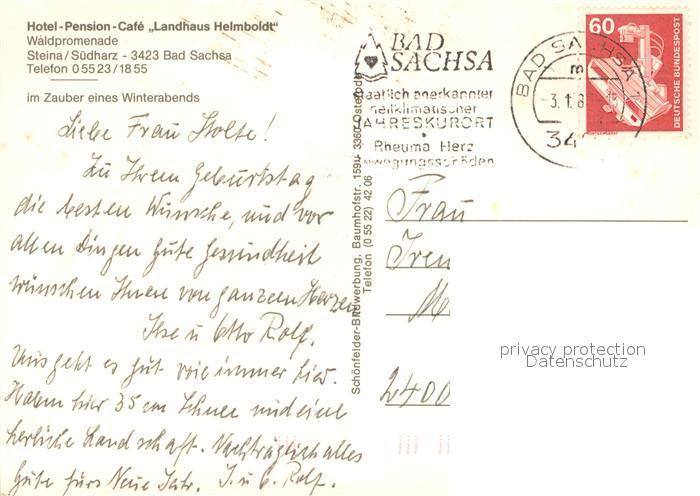 Hotel-Pension-Café „Landhaus Helmboldt"
Waldpromenade
Steina/Südharz - 3423 Bad Sachsa
Telefon 0 55 23 / 18 55
im Zauber eines Winterabends
Liebe Frau Stolte!
Zu Ihrem Geburtstag
die besten Wünsche, und vor
allen Dingen gute Gesundheit
wünschen Ihnen von ganzem Herzen
Ilse u Otto Rolf.
Uns geht es gut wie immer hier.
Haben hier 35 cm Schnee und eine
herrliche Landschaft. Nachträglich alles
Gute fürs Neue Jahr. I. u O. Rolf.
Schönfelder-Bildwerbung, Baumhofstr. 159u, 3360 Osterode
Telefon (0 55 22) 42 06
BAD
SACHSA
staatlich anerkannter
heilklimatischer
JAHRESKURORT
Rheuma Herz
Bewegungsschäden
BAD SACHSA 1
m
-3.1.8
34
60
DEUTSCHE BUNDESPOST
Frau
Iren
2400
privacy protection
Datenschutz